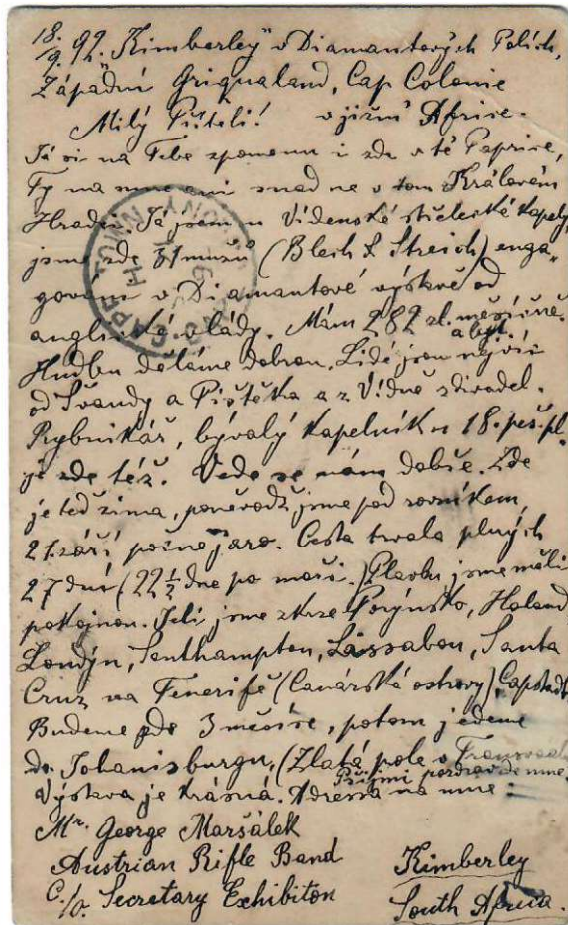 18.
9. 92. "Kimberley" v Diamantových Polích,
Západní Griqualand, Cap Colonie
Milý Příteli! v jižní Africe.
Já si na Tebe zpomenu i zde v té Paprice,
Ty na mne ani snad ne v tom Královém
Hradci. Já jsem u Vídenské střelecké kapely,
jsme zde 31 mužů (Blech & Streich) enga-
gováni v Diamantové výstavě od
anglické vlády. Mám 282 zl. měsíčně
a byt.
Hudbu děláme dobrou. Lidé jsou nejvíc
od Švandy a Pištěka a z Vídně z divadel.
Rybnikář, bývalý kapelník u 18. peš. pl.
je zde též. Vede se nám dobře. Zde
je teď zima, poněvadž jsme pod rovníkem,
21. září počne jaro. Cesta trvala plných
27 dnů (22 ½ dne po moři.) Plavbu jsme měli
pokojnou. Jeli jsme zkrze Porýnsko, Holand
Londýn, Southampton, Lissabon, Santa
Cruz na Tenerifě (Canárské ostrovy), Capstadt
Budeme zde 3 měsíce, potom jedeme
do Johanisburgu, (Zlatá pole v Transvaalu
Přijmi pozdrav ode mne.
Výstava je krásná. Adressa na mne:
Mr. George Maršálek
Austrian Rifle Band Kimberley
C./o. Secretary Exhibiton South Africa.
CAPE TOWN